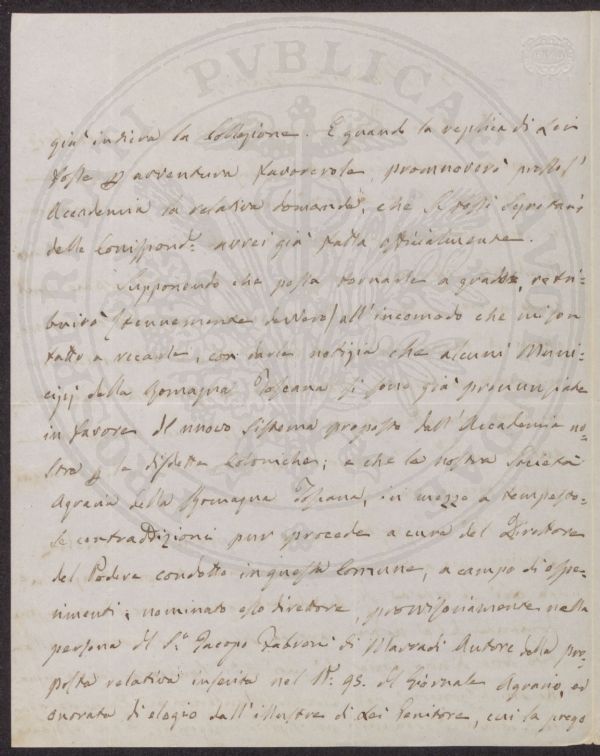 già intiera la Collezione. E quando la replica di Lei
fosse p avventura favorevole, promuoverò presso l'
Accademia la relativa domanda, che
delle Corrispond.e avrei già fatta officialmente.
Supponendo che possa tornarle a grado, retri-
buirò (tenuemente davvero) all'incomodo che mi son
fatto a recarle, con darle notizia che alcuni Muni-
cipj della Romagna Toscana si sono già pronunziati
in favore del nuovo sistema proposto dall'Accademia no-
stra p le disdette Coloniche; e che la nostra Società
Agraria della Romagna Toscana, in mezzo a tempesto-
se contraddizioni pur procede a cura del Direttore
del Podere condotto in questa Comune, a campo di espe-
rimenti; nominato esso direttore, provvisoriamente nella
persona del S.r Jacopo Fabroni di Marradi Autore della pro-
posta relativa inserita nel N.° 95. del Giornale Agrario, ed
onorata di elogio dall'illustre di Lei Genitore, cui la prego